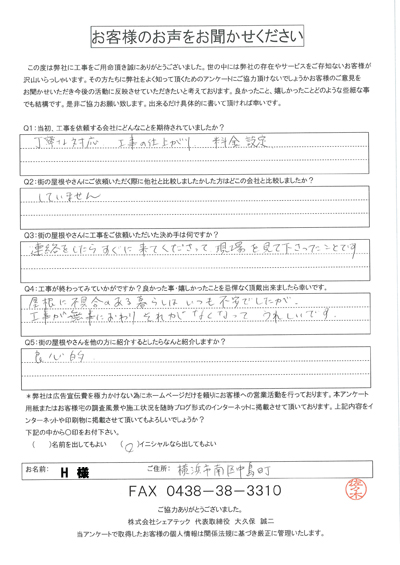 お客様のお声をお聞かせください
この度は弊社に工事をご用命頂き誠にありがとうございました。世の中には弊社の存在やサービスをご存知ないお客様が
沢山いらっしゃいます。その方たちに弊社をよく知って頂くためのアンケートにご協力頂けないでしょうかお客様のご意見を
お聞かせいただき今後の活動に反映させていただきたいと考えております。良かったこと、嬉しかったことどのような些細な事
でも結構です。是非ご協力お願い致します。出来るだけ具体的に書いて頂ければ幸いです。
Q1:当初、工事を依頼する会社にどんなことを期待されていましたか?
丁寧な対応 工事の仕上がり 料金設定
Q2:街の屋根やさんにご依頼いただく際に他社と比較しましたかした方はどこの会社と比較しましたか?
していません
Q3:街の屋根やさんに工事をご依頼いただいた決め手は何ですか?
連絡をしたらすぐに来てくださって現場を見て下さったことです
Q4:工事が終わってみていかがですか?良かった事・嬉しかったことを忌憚なく頂戴出来ましたら幸いです。
屋根に不具合のある暮らしはいつも不安でしたが、
工事が無事におわりそれがなくなってうれしいです。
Q5:街の屋根やさんを他の方に紹介するとしたらなんと紹介しますか?
良心的
*弊社は広告宣伝費を極力かけない為にホームページだけを頼りにお客様への営業活動を行っております。本アンケート
用紙またはお客様宅の調査風景や施工状況を随時ブログ形式のインターネットに掲載させて頂いております。上記内容をイ
ンターネットや印刷物に掲載させて頂いてもよろしいでしょうか?
下記の中から〇印をお付下さい。
( )名前を出してもよい (〇)イニシャルなら出してもよい
お名前: H 様 ご住所: 横浜市南区中島町
FAX 0438-38-3310
佐々木
ご協力ありがとうございました。
株式会社シェアテック 代表取締役 大久保 誠二
当アンケートで取得したお客様の個人情報は関係法規に基づき厳正に管理いたします。